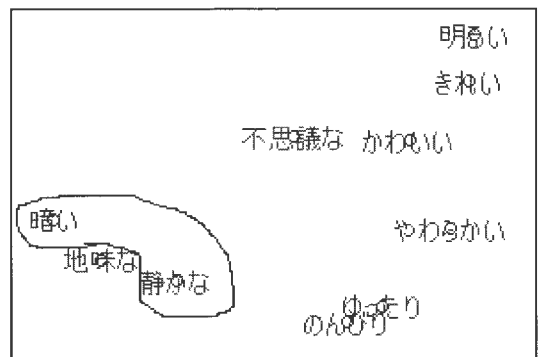 明るい
きれい
不思議な かわいい
暗い
やわらかい
地味な
静かな
ゆったり
のんびり